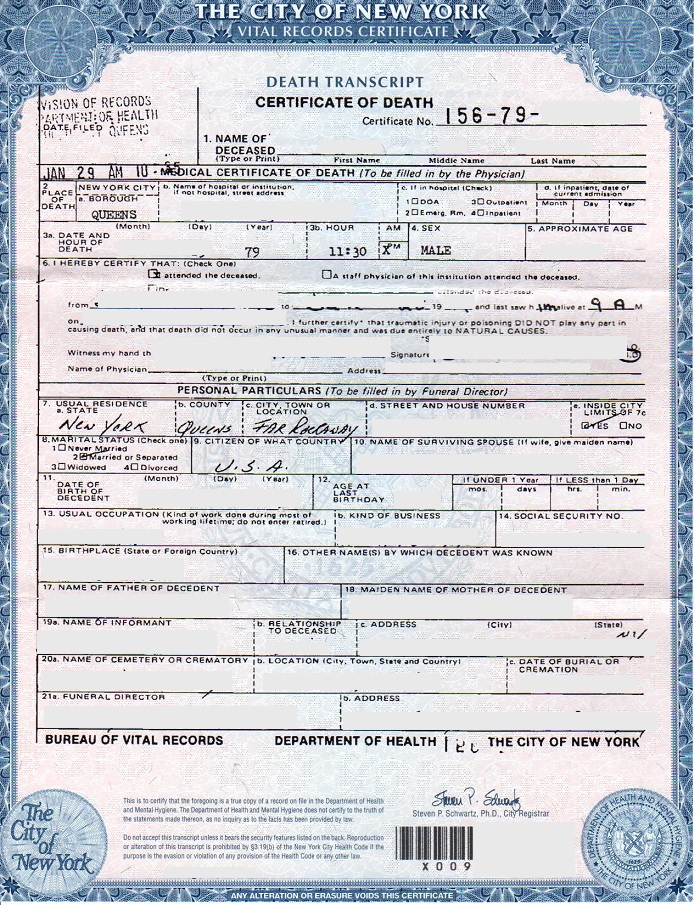 THE CITY OF NEW YORK
VITAL RECORDS CERTIFICATE
DEATH TRANSCRIPT
CERTIFICATE OF DEATH
Certificate No. 156-79-
VISION OF RECORDS
ARTMENT OF HEALTH
DATE FILED QUEENS
JAN 29 AM 10
1. NAME OF DECEASED
(Type or Print) First Name Middle Name Last Name
MEDICAL CERTIFICATE OF DEATH (To be filled in by the Physician)
2. PLACE OF DEATH
NEW YORK CITY
a. BOROUGH
QUEENS
b. Name of hospital or institution, if not hospital, street address
c. If in hospital (Check)
1 DOA 3 Outpatient
2 Emerg. Rm, 4 Inpatient
d. If inpatient, date of current admission
Month Day Year
3a. DATE AND HOUR OF DEATH
(Month) (Day) (Year)
79
3b. HOUR AM
11:30 X PM
4. SEX
MALE
5. APPROXIMATE AGE
6. I HEREBY CERTIFY THAT: (Check One)
attended the deceased. A staff physician of this institution attended the deceased.
attended the deceased.
from to 19 and last saw him alive at 9 A M
on I further certify* that traumatic injury or poisoning DID NOT play any part in
causing death, and that death did not occur in any unusual manner and was due entirely to NATURAL CAUSES.
Witness my hand th Signatur
Name of Physician Address
(Type or Print)
PERSONAL PARTICULARS (To be filled in by Funeral Director)
7. USUAL RESIDENCE
a. STATE
New York
b. COUNTY
Queens
c. CITY, TOWN OR LOCATION
Far Rockaway
d. STREET AND HOUSE NUMBER
e. INSIDE CITY LIMITS OF 7c
YES NO
8. MARITAL STATUS (Check one)
1 Never Married
2 Married or Separated
3 Widowed 4 Divorced
9. CITIZEN OF WHAT COUNTRY
U.S.A.
10. NAME OF SURVIVING SPOUSE (If wife, give maiden name)
11. DATE OF BIRTH OF DECEDENT
(Month) (Day) (Year)
12. AGE AT LAST BIRTHDAY
If UNDER 1 Year
mos. days
If LESS than 1 Day
hrs. min.
13. USUAL OCCUPATION (Kind of work done during most of working lifetime; do not enter retired.)
b. KIND OF BUSINESS
14. SOCIAL SECURITY NO.
15. BIRTHPLACE (State or Foreign Country)
16. OTHER NAME(S) BY WHICH DECEDENT WAS KNOWN
17. NAME OF FATHER OF DECEDENT
18. MAIDEN NAME OF MOTHER OF DECEDENT
19a. NAME OF INFORMANT
b. RELATIONSHIP TO DECEASED
c. ADDRESS (City) (State)
20a. NAME OF CEMETERY OR CREMATORY
b. LOCATION (City, Town, State and Country)
c. DATE OF BURIAL OR CREMATION
21a. FUNERAL DIRECTOR
b. ADDRESS
BUREAU OF VITAL RECORDS DEPARTMENT OF HEALTH THE CITY OF NEW YORK
The City of New York
This is to certify that the foregoing is a true copy of a record on file in the Department of Health
and Mental Hygiene. The Department of Health and Mental Hygiene does not certify to the truth of
the statements made thereon, as no inquiry as to the facts has been provided by law.
Do not accept this transcript unless it bears the security features listed on the back. Reproduction
or alteration of this transcript is prohibited by §3.19(b) of the New York City Health Code if the
purpose is the evasion or violation of any provision of the Health Code or any other law.
Steven P. Schwartz
Steven P. Schwartz, Ph.D., City Registrar
X009
DEPARTMENT OF HEALTH AND MENTAL HYGIENE
THE CITY OF NEW YORK
1625
ANY ALTERATION OR ERASURE VOIDS THIS CERTIFICATE